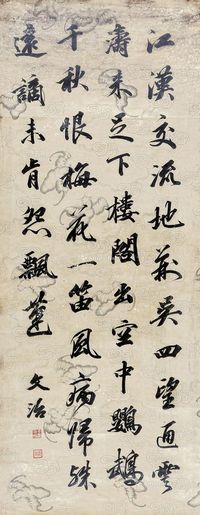 江漢交流地荊吳四望通雲
濤未足下樓閣出空中鸚鵡
千秋恨梅花一笛風病歸殊
遠謫未肯怨飄蓬
文治